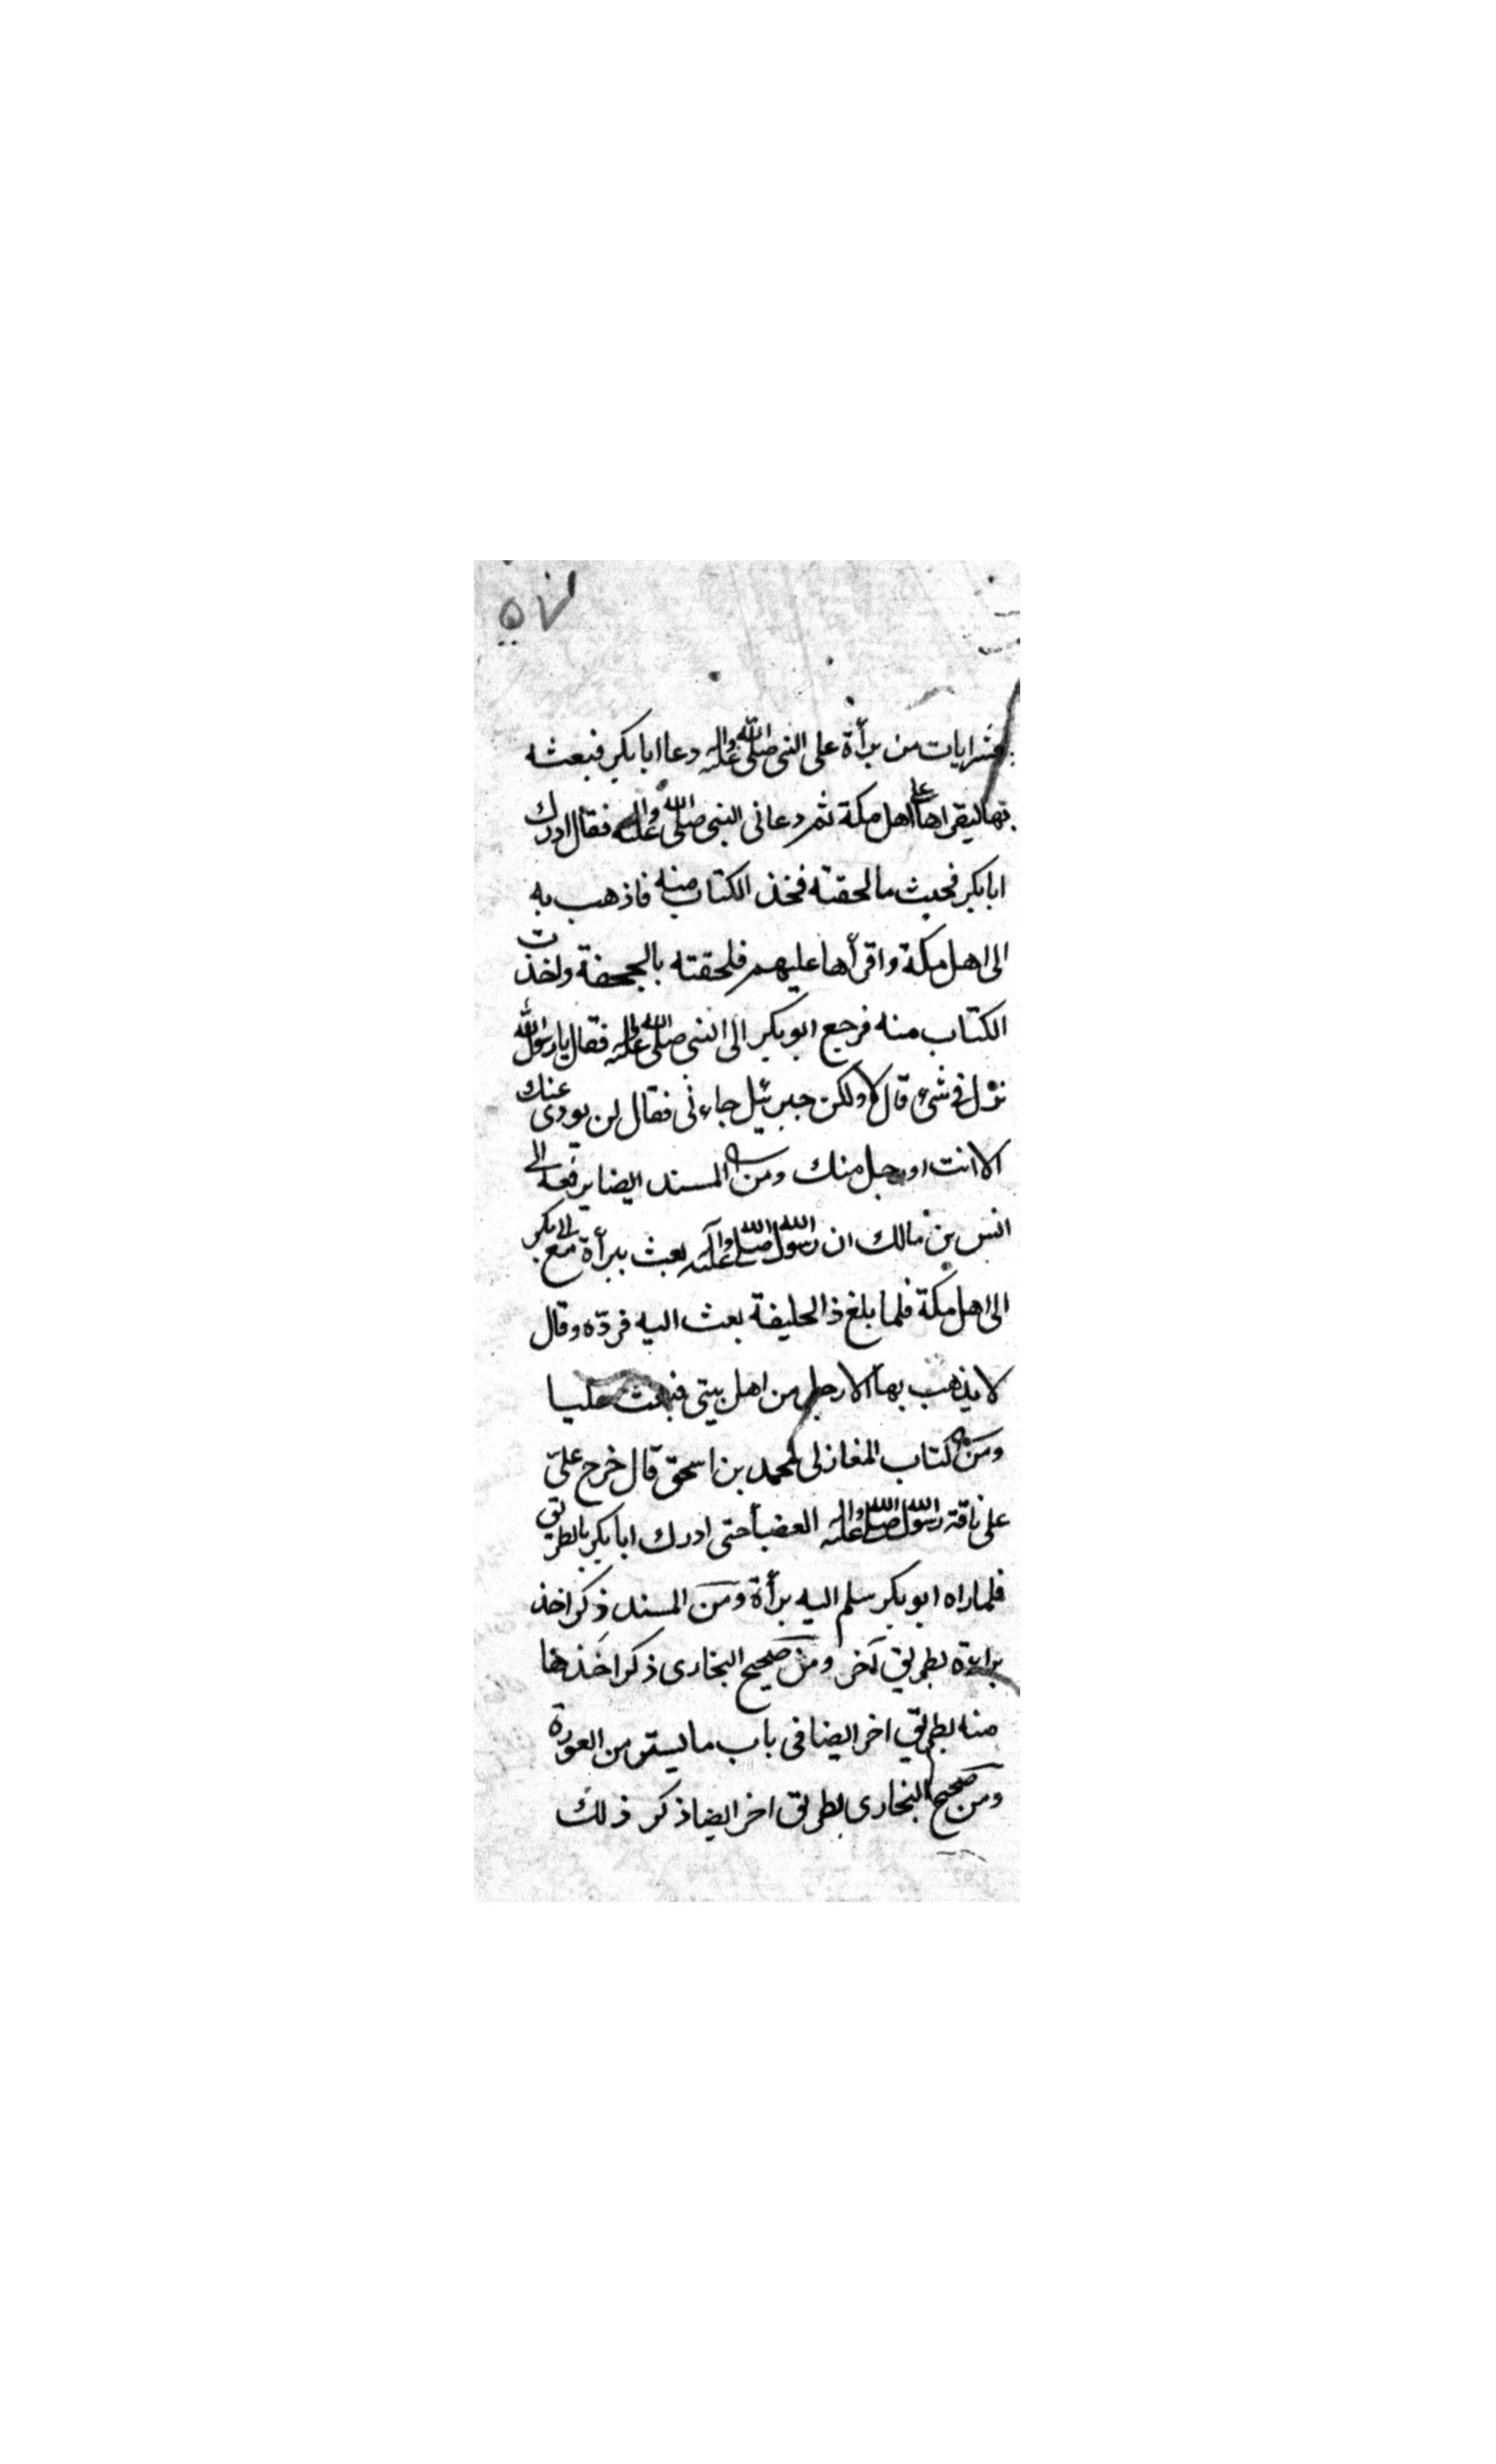 ٥٧
عشر ايات من برأة على النبى صلى الله عليه واله دعا ابا بكر فبعثه
بها ليقراها على اهل مكة ثم دعانى النبى صلى الله عليه واله فقال ادرك
ابا بكر فحيث ما لحقته فخذ الكتاب منه فاذهب به
الى اهل مكة واقرأها عليهم فلحقته بالجحفة واخذت
الكتاب منه فرجع ابو بكر الى النبى صلى الله عليه واله فقال يا رسول الله
نزل فى شئ قال لا ولكن جبرئيل جاءنى فقال لن يودى عنك
الا انت او رجل منك ومن المسند ايضا يرفعه الى
انس بن مالك ان رسول الله صلى الله عليه وآله بعث ببرأة مع ابى بكر
الى اهل مكة فلما بلغ ذا الحليفة بعث اليه فردّه وقال
لا يذهب بها الا رجل من اهل بيتى فبعث عليا
ومن كتاب المغازى لمحمد بن اسحق قال خرج علىّ
على ناقة رسول الله صلى الله عليه واله العضبأ حتى ادرك ابا بكر بالطريق
فلما راه ابو بكر سلم اليه برأة ومن المسند ذكر اخذ
براءة بطريق آخر ومن صحيح البخارى ذكر اخذها
منه بطريق اخر ايضا فى باب ما يستر من العورة
ومن صحيح البخارى بطريق اخر ايضا ذكر ذلك